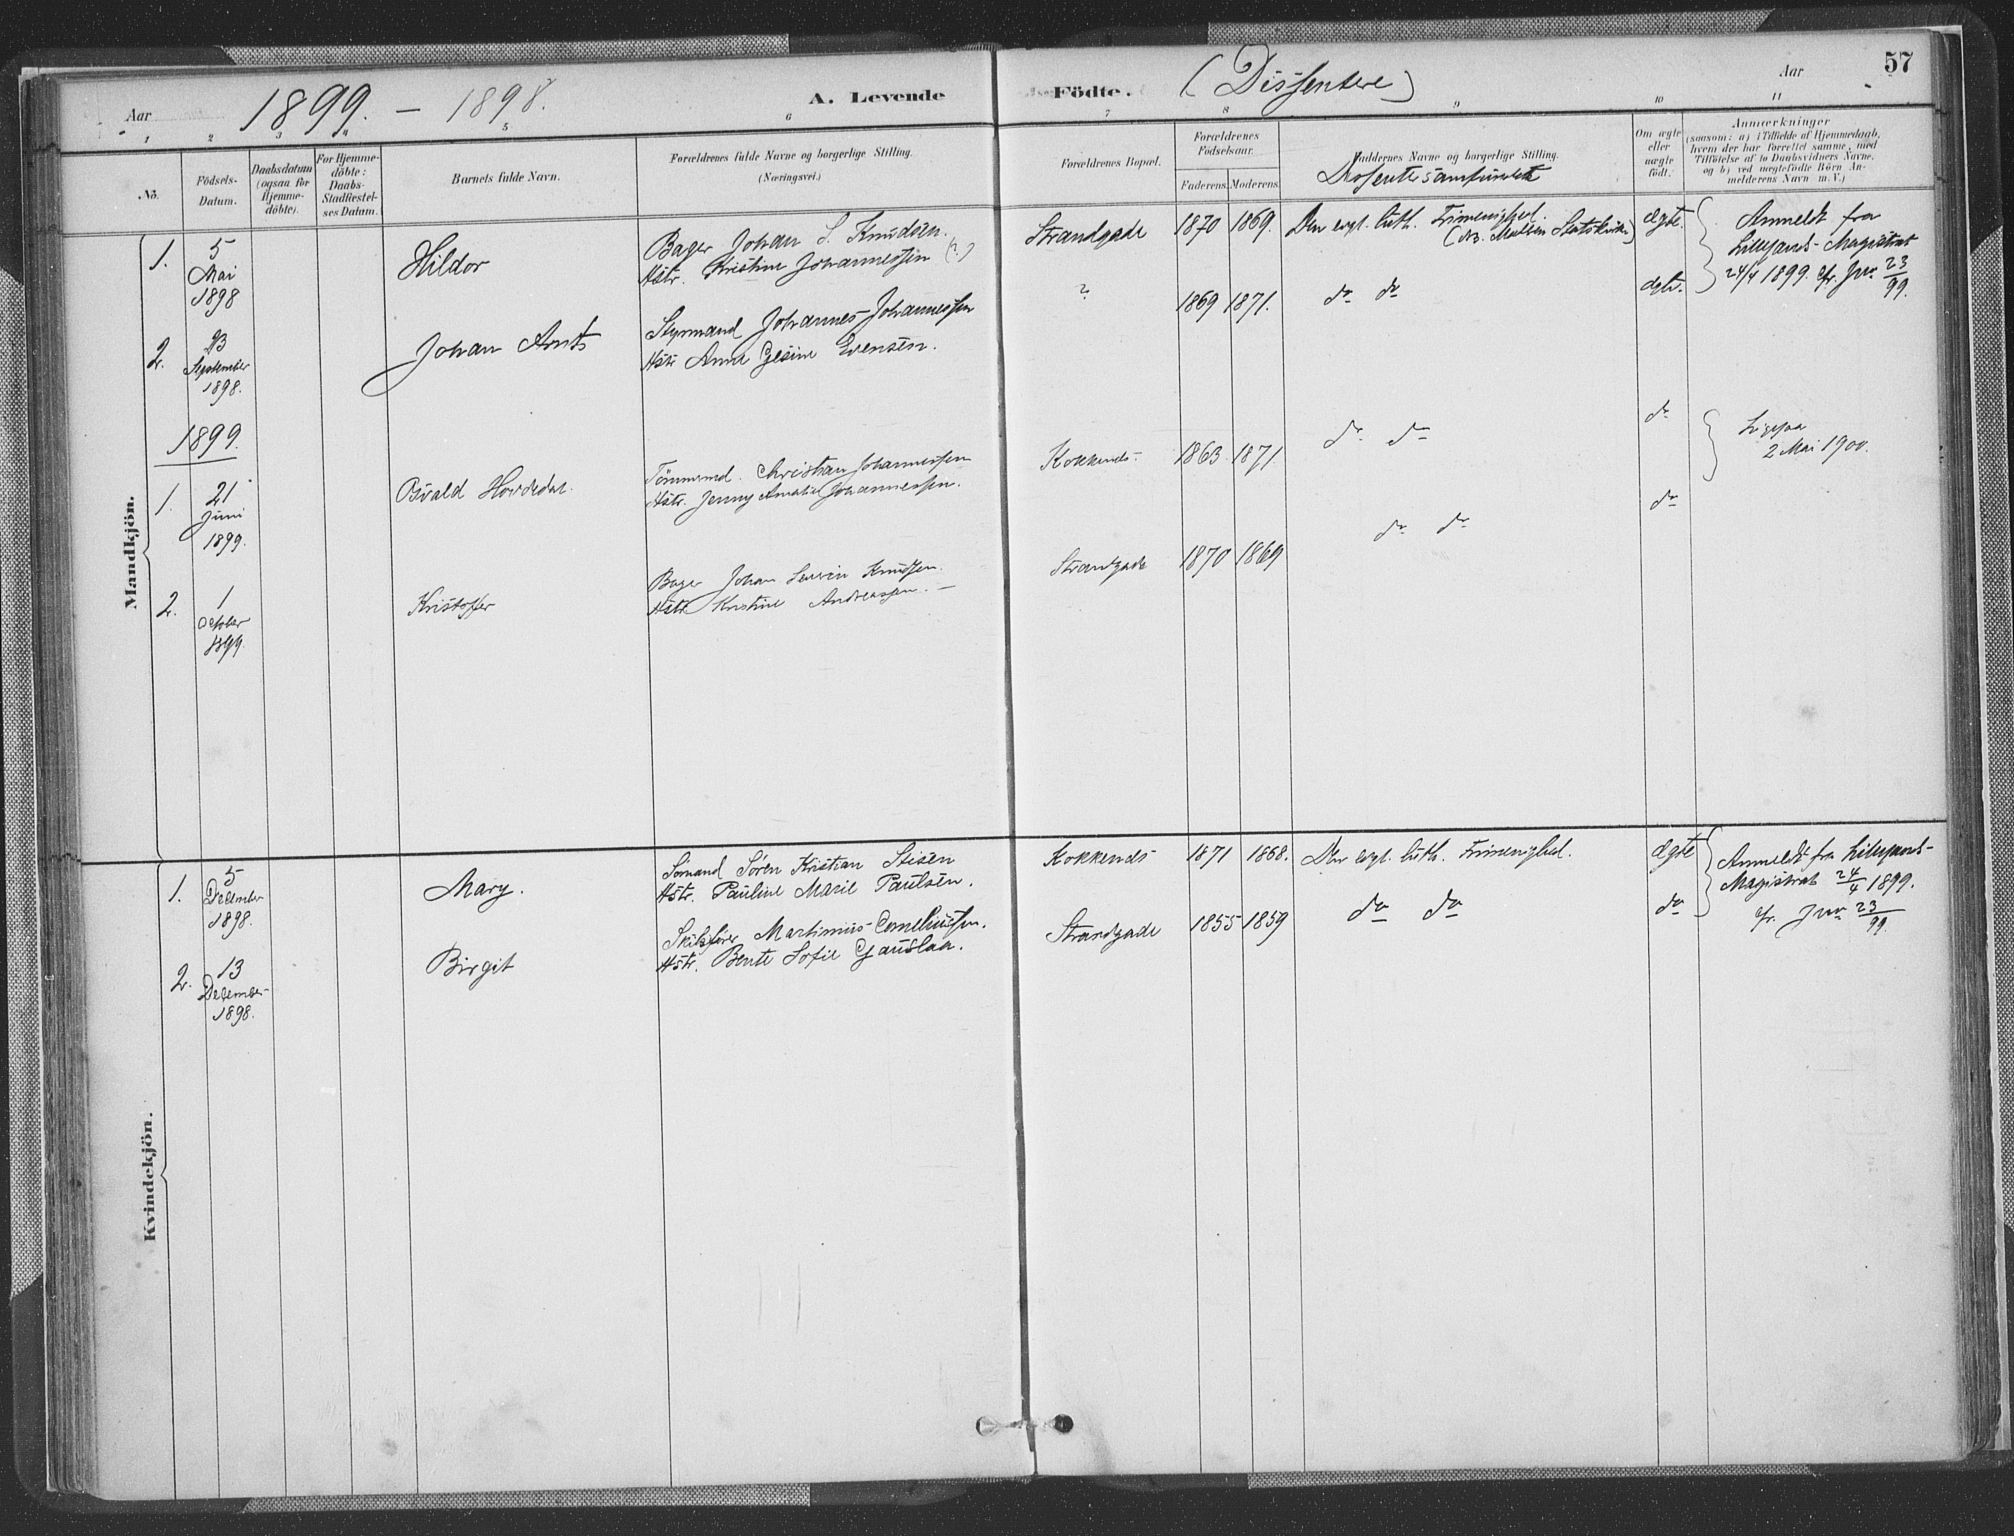 57
Aar 1899. - 1898. A. Levende Födte. (Dissentere) Aar
1 2 3 4 5 6 7 8 9 10 11
No. Födsels-Datum. Daabsdatum (ogsaa for Hjemmedöbte). For Hjemmedöbte: Daabs-Stadfæstelses Datum. Barnets fulde Navn. Forældrenes fulde Navne og borgerlige Stilling. (Næringsvei.) Forældrenes Bopæl. Forældrenes Födselsaar. Faderens. Moderens. Faddernes Navne og borgerlige Stilling. Om ægte eller uægte födt. Anmærkninger
(saasom: a) i Tilfælde af Hjemmedaab, hvem der har forrettet samme, med Tilföielse af to Daabsvidners Navne, og b) ved uægtefödte Börn Anmelderens Navn m. V.)
Mandkjön.
1. 5 Mai 1898 Hildor Bager Johan S. Knudsen. Strandgade 1870 1869. Den evgl. luth. Frimenighed. Ægte. Anmeldt fra
Hstr. Kristine Johannessen (?) Magistrat
24/4 1899. cfr. Jnr. 23/99.
2. September 1898. Johan Arnts Styrmand Johannes Johannessen ? 1869 1871. do do Ægte.
Hstr. Anna Gesine Evensen.
1899.
1. 21 Juni 1899. Hovdedal. Tömmermd. Christian Johannessen Kokkends. 1863 1871 do do do Ligesaa
Hstr. Jenny Amalie Johannessen. 2 Mai 1900.
2. 1 October 1899. Kristoffer Bager Johan Severin Knudsen. Strandgade 1870 1869 do do do
Hstr. Kristine Andreassen. —
Kvindekjön.
1. 5 December 1898. Mary. Sömand Sören Kristian Stisen Kokkends 1871 1868. Den evgl. luth. Frimenighed. Ægte Anmeldt fra
Hstr. Pauline Marie Paulsen. Magistrat 24/4 1899.
cfr. Jnr 23/99.
2. 13 December 1898. Birgit Skibsförer Martinius Corneliussen. Strandgade 1855 1859 do do do
Hstr. Bente Sofie Gauslaa.